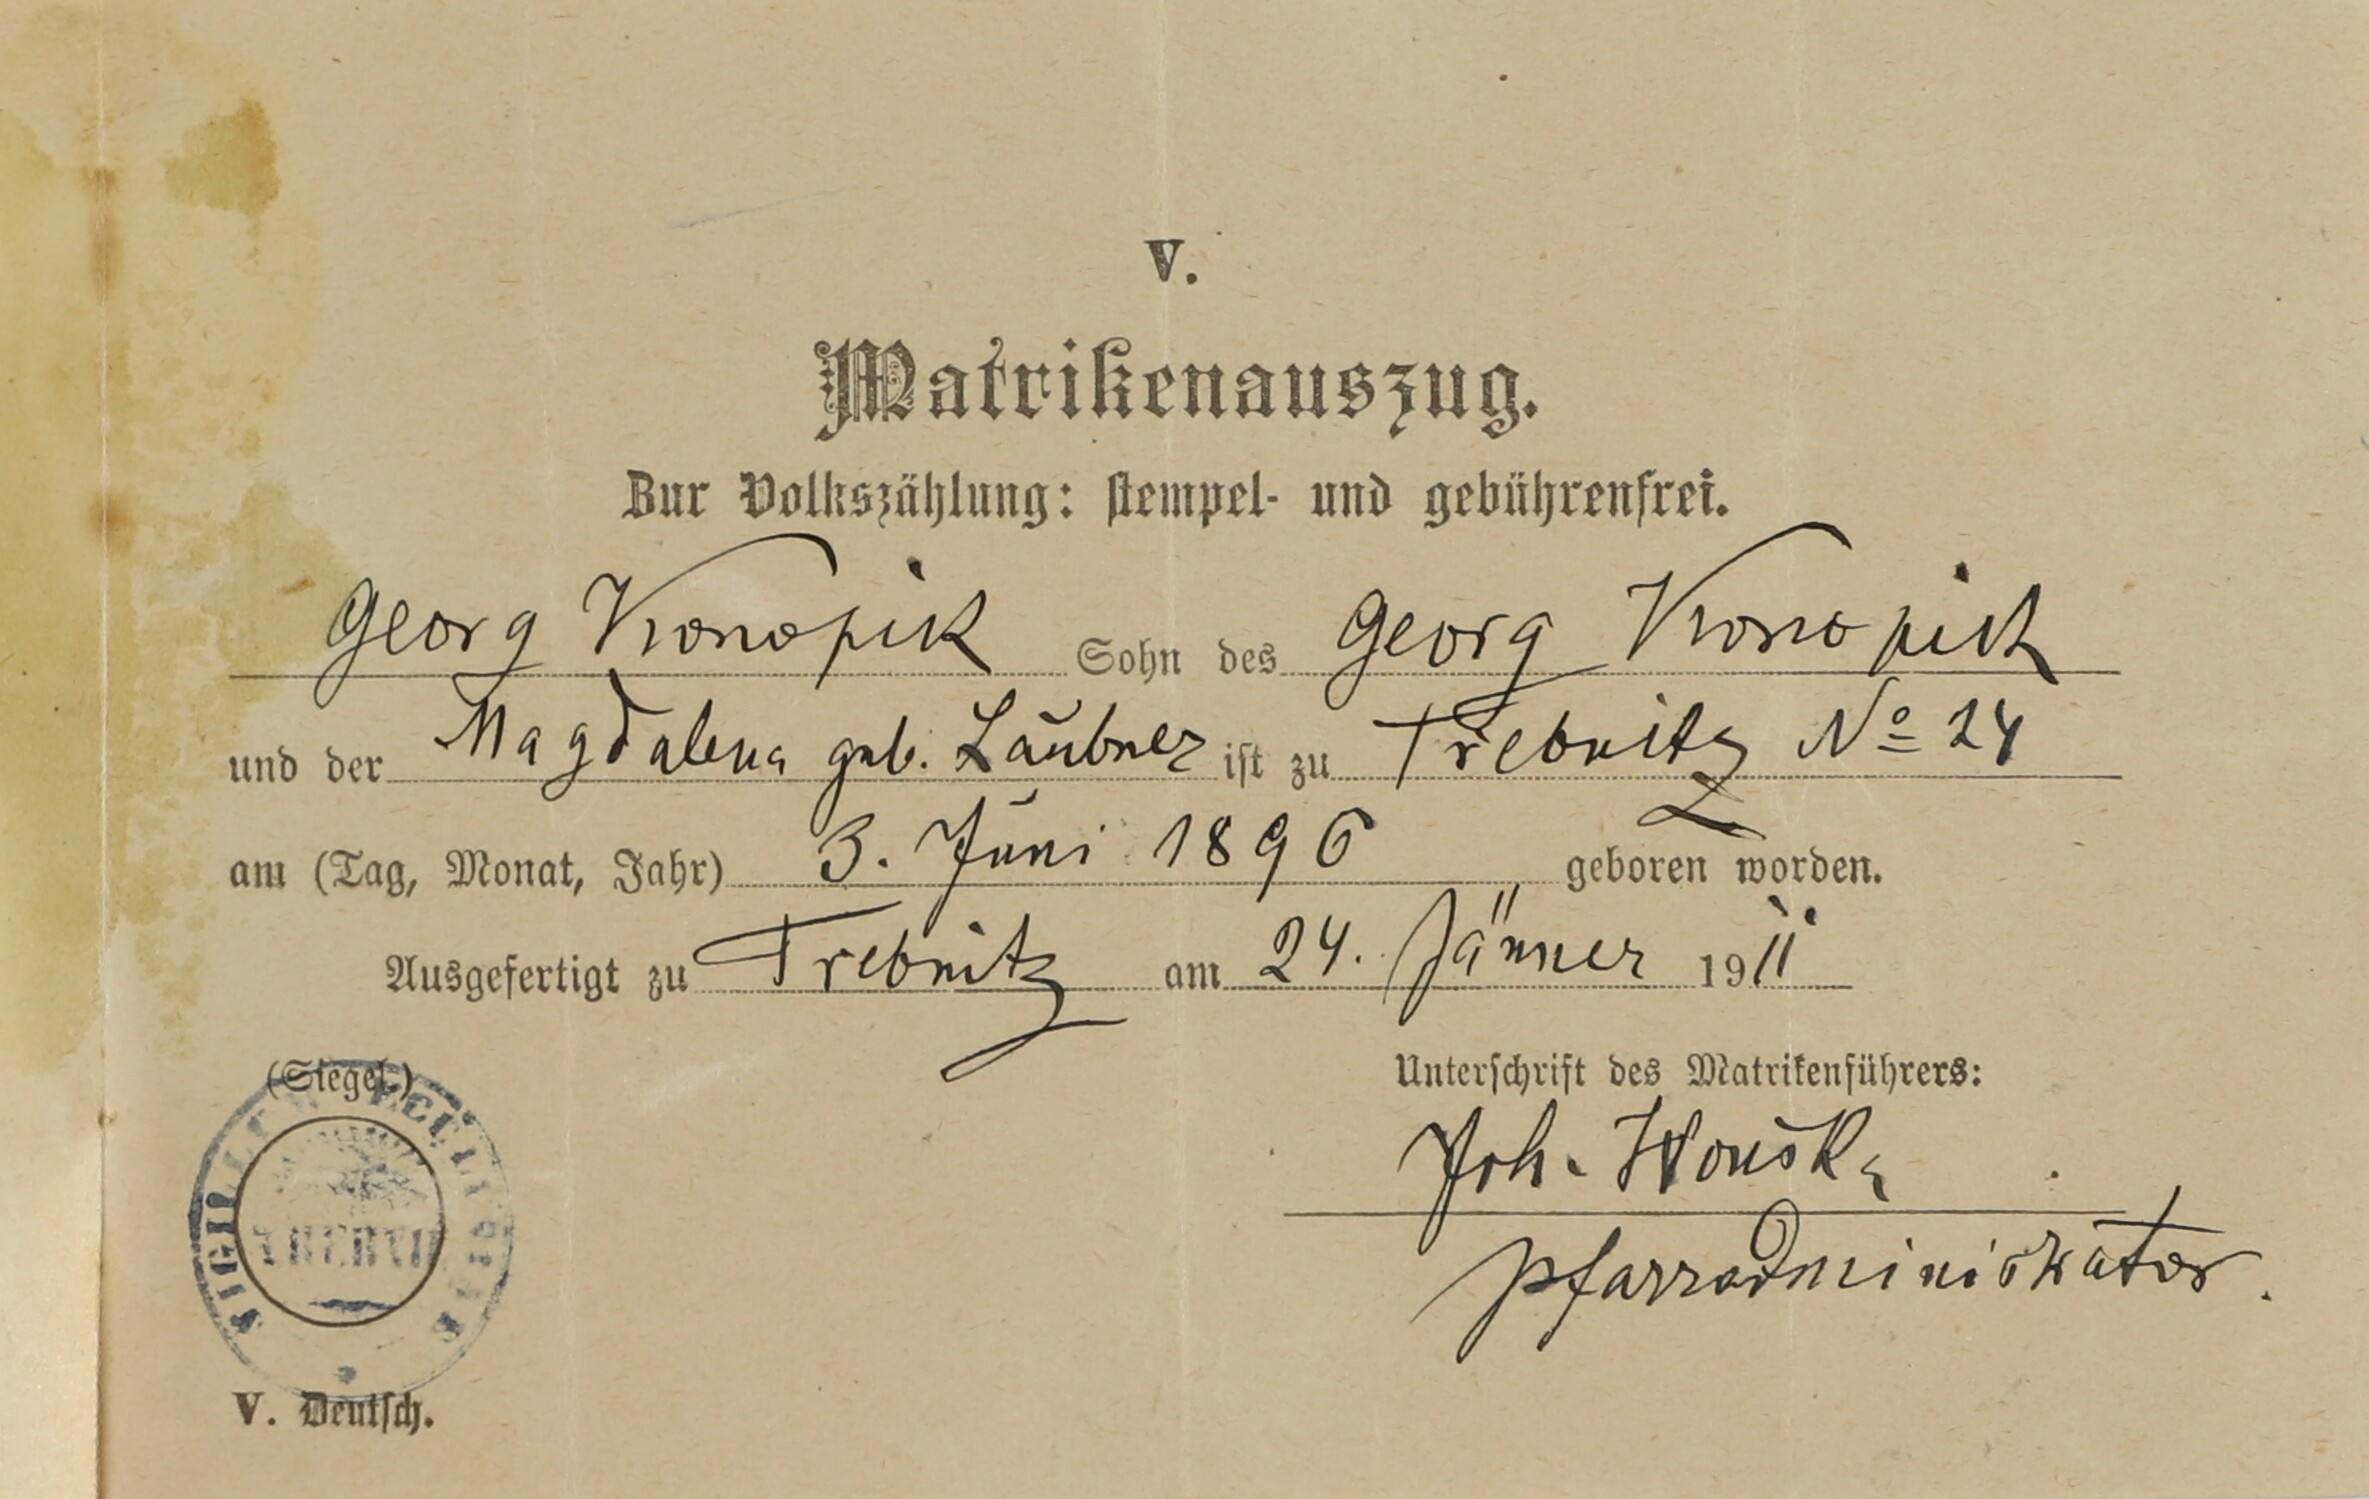 V.
Matrikenauszug.
Zur Volkszählung: stempel- und gebührenfrei.
Georg Konopik Sohn des Georg Konopik
und der Magdalena geb. Laubner ist zu Trebnitz No 24
am (Tag, Monat, Jahr) 3. Juni 1896 geboren worden.
Ausgefertigt zu Trebnitz am 24. Jänner 1911
(Siegel.)
Unterschrift des Matrikenführers:
Joh. Wouska
Pfarradministrator.
V. Deutsch.